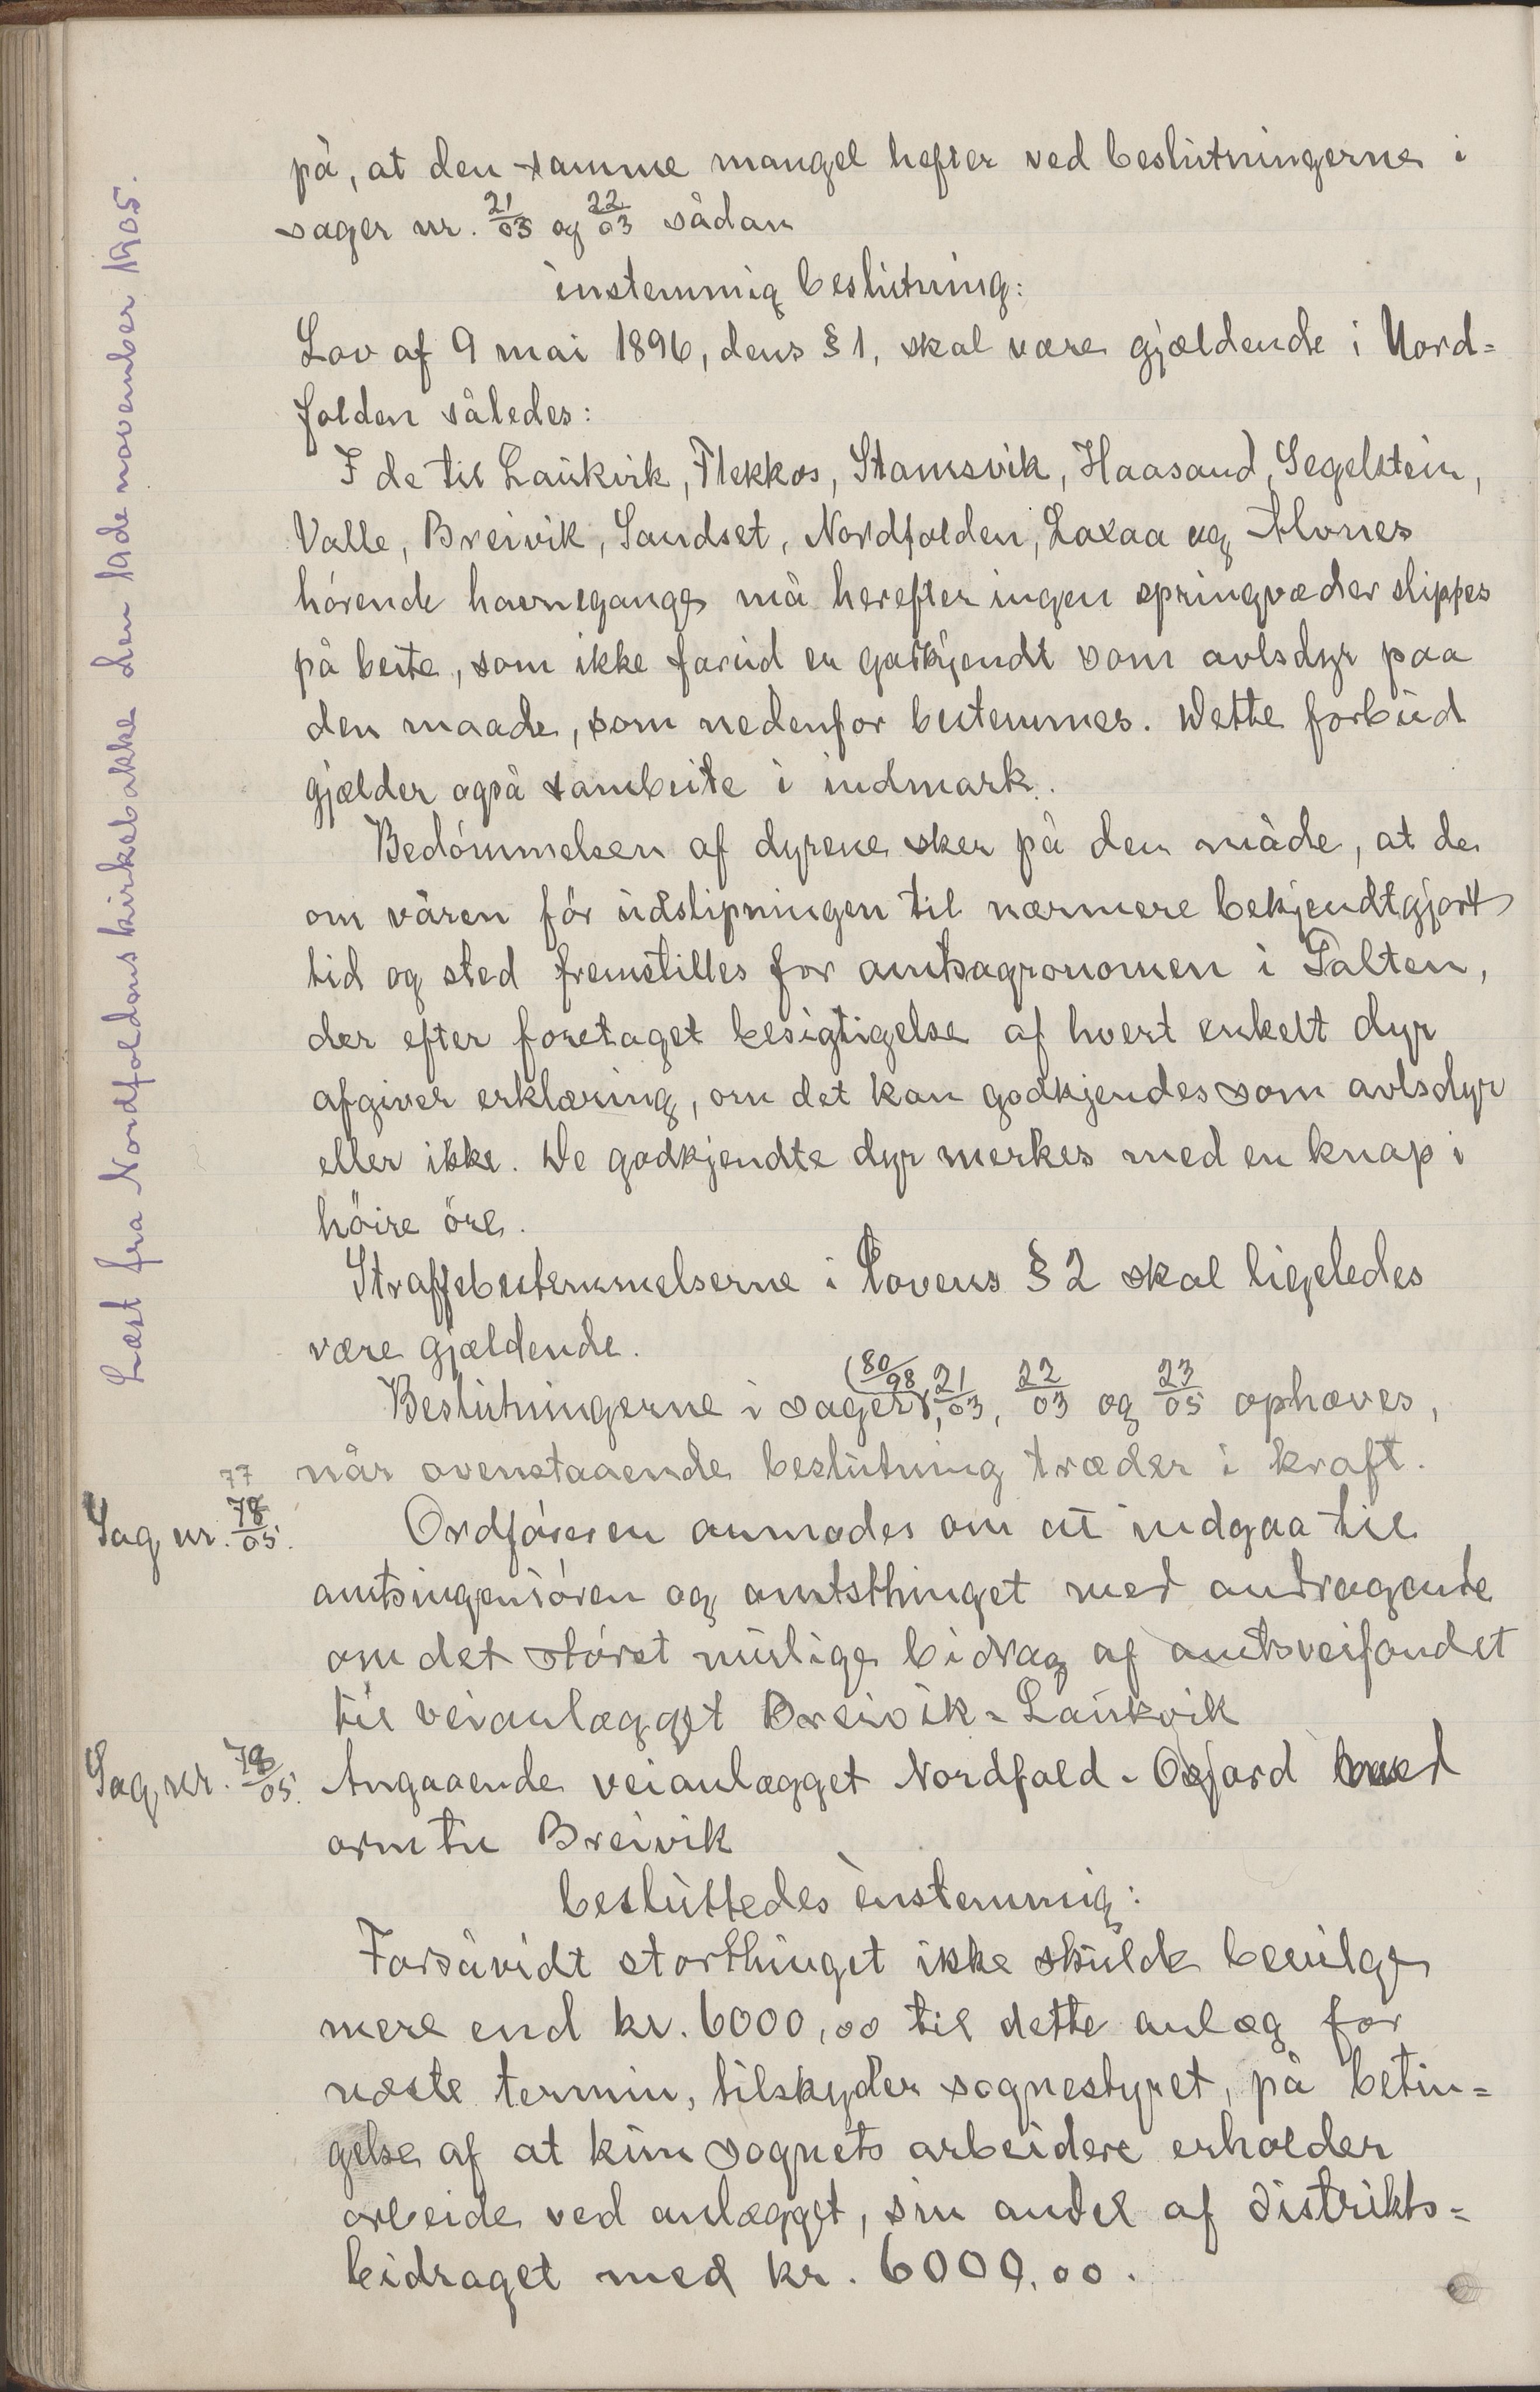 på, at den samme mangel hefter ved beslutningerne i
sager nr. 21/03 og 22/03 sådan
enstemmig beslutning:
Lov af 9 mai 1896, dens § 1, skal være gjældende i Nord=
folden således:
I de til Laukvik, Flekkos, Stamsvik, Haasand, Segelstein,
Valle, Breivik, Sandset, Nordfolden, Laxaa og Alvnes
hørende havnegange må herefter ingen springvæder slippes
på beite, som ikke forud er godkjendt som avlsdyr paa
den maade, som nedenfor bestemmes. Dette forbud
gjælder også sambeite i indmark.
Bedømmelsen af dyrene sker på den måde, at de
om våren før udslipningen til nærmere bekjendtgjort
tid og sted fremstilles for amtsagronomen i Salten,
der efter foretaget besigtigelse af hvert enkelt dyr
afgiver erklæring, om det kan godkjendes som avlsdyr
eller ikke. De godkjendte dyr merkes med en knap i
høire øre.
Straffebestemmelserne i Lovens § 2 skal ligeledes
være gjældende.
Beslutningerne i sager 80/98, 21/03, 22/03 og 23/05 ophæves,
når ovenstaaende beslutning træder i kraft.
77
Sag nr. 78/05. Ordføreren anmodes om at indgaa til
amtsingeniøren og amtsthinget med andragende
om det størst mulige bidrag af amtsveifondet
til veianlægget Breivik-Laukvik
Sag nr. 78/05. Angaaende veianlægget Nordfold-Oxfjord med
arm til Breivik
besluttedes enstemmig:
Forsåvidt storthinget ikke skulde bevilge
mere end kr. 6000,00 til dette anlæg for
næste termin, tilskyder sognestyret, på betin=
gelse af at kun sognets arbeidere erholder
arbeide ved anlægget, sin andel af distrikts=
bidraget med kr. 6000,00.
Læst fra Nordfoldens kirkebakke den 19de november 1905.